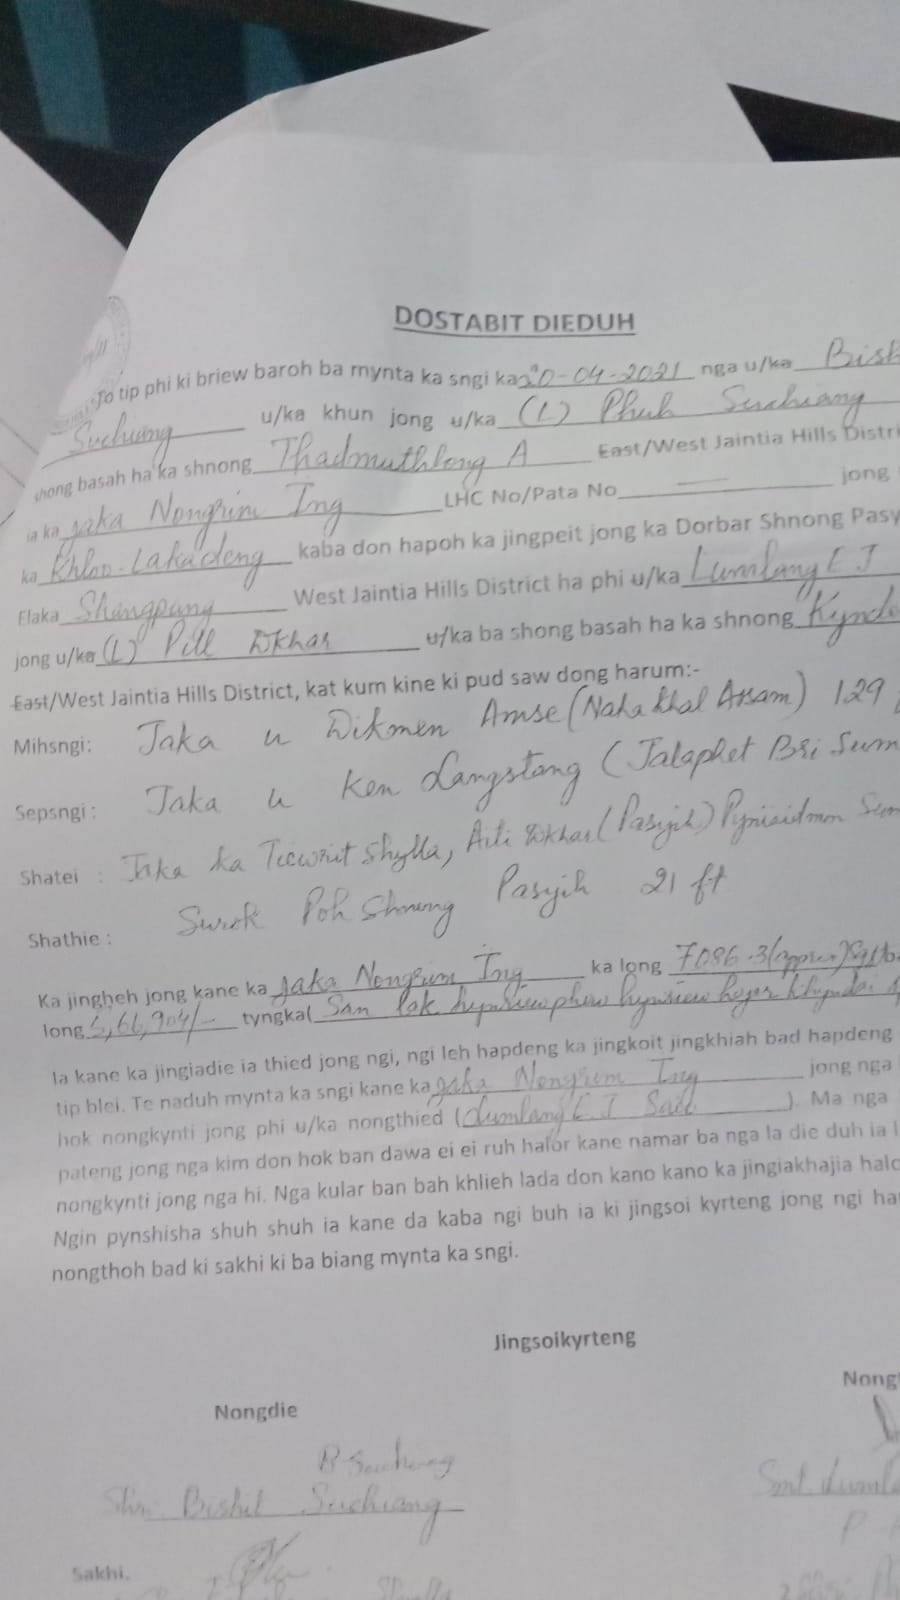 DOSTABIT DIEDUH
To tip phi ki briew baroh ba mynta ka sngi ka 20-04-2021 nga u/ka Bish
Suchiang u/ka khun jong u/ka (L) Phuh Suchiang
shong basah ha ka shnong Thadmuthlong A East/West Jaintia Hills Distri
ia ka jaka Nongrim Ing LHC No/Pata No — jong
ka Khloo-Lakadeng kaba don hapoh ka jingpeit jong ka Dorbar Shnong Pasy
Elaka Shangpung West Jaintia Hills District ha phi u/ka Lumlang E J
jong u/ka (L) Pill Dkhar u/ka ba shong basah ha ka shnong Kynd
East/West Jaintia Hills District, kat kum kine ki pud saw dong harum:-
Mihsngi: Jaka u Dikmen Amse (Naka khal Assam) 129
Sepsngi: Jaka u Ken Langstang (Jalaphet Bri Sum
Shatei : Jaka ka Shylla, Dkhar (Pasyih)
Shathie : Surok Poh Shnong Pasyih 21 ft
Ka jingheh jong kane ka jaka Nongrim Ing ka long 7086.3 (approx)
long 5,66,904/- tyngka San lak hynriewphew hynriew hajar khyndai
Ia kane ka jingiadie ia thied jong ngi, ngi leh hapdeng ka jingkoit jingkhiah bad hapdeng
tip blei. Te naduh mynta ka sngi kane ka jaka Nongrim Ing jong nga
hok nongkynti jong phi u/ka nongthied (Lumlang E J ). Ma nga
pateng jong nga kim don hok ban dawa ei ei ruh halor kane namar ba nga la die duh ia
nongkynti jong nga hi. Nga kular ban bah khlieh lada don kano kano ka jingiakhajia halo
Ngin pynshisha shuh shuh ia kane da kaba ngi buh ia ki jingsoi kyrteng jong ngi ha
nongthoh bad ki sakhi ki ba biang mynta ka sngi.
Jingsoikyrteng
Nong
Nongdie
B Suchiang
Shri. Bishil Suchiang
Smt. Lumla
P
Sakhi.